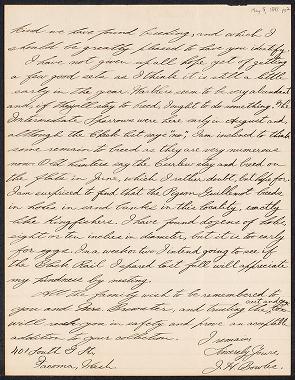 May 5, 1895 pg 2
bird we have found breeding, and which I
should be greatly pleased to have you identify.
I have not given up all hope yet of getting
a few good sets as I think it is still a little
early in the year. Warblers seem to be very abundant
and, if they will stay to breed, I ought to do something. The
Intermediate Sparrows were here early in August and,
although the Check List says "no", I am inclined to think
some remain to breed as they are very numerous
now. Old hunters say the Curlew stay and breed on
the flats in June, which I rather doubt, but hope for.
I am surprised to find that the Pigeon Guillemot breeds
in holes in sand banks in this locality, exactly
like Kingfishers. I have found dozens of holes,
eight or ten inches in diameter, but it is too early
for eggs. In a week or two I intend going to see if
the Black Rail I spared last fall will appreciate
my kindness by nesting.
All the family wish to be remembered to
you and Mrs. Brewster, and trusting the set and
will reach you in safety and prove an acceptable
addition to your collection. I remain
Sincerely Yours,
401 South G St. J. H. Bowles.
Tacoma, Wash